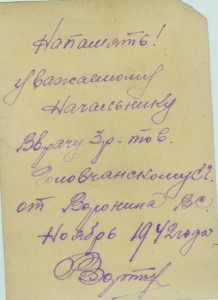 На память!
уважаемому
Начальнику
Вврачу 3р. тов.
Головчанскому
от Воронина ВС.
Ноябрь 1942 года